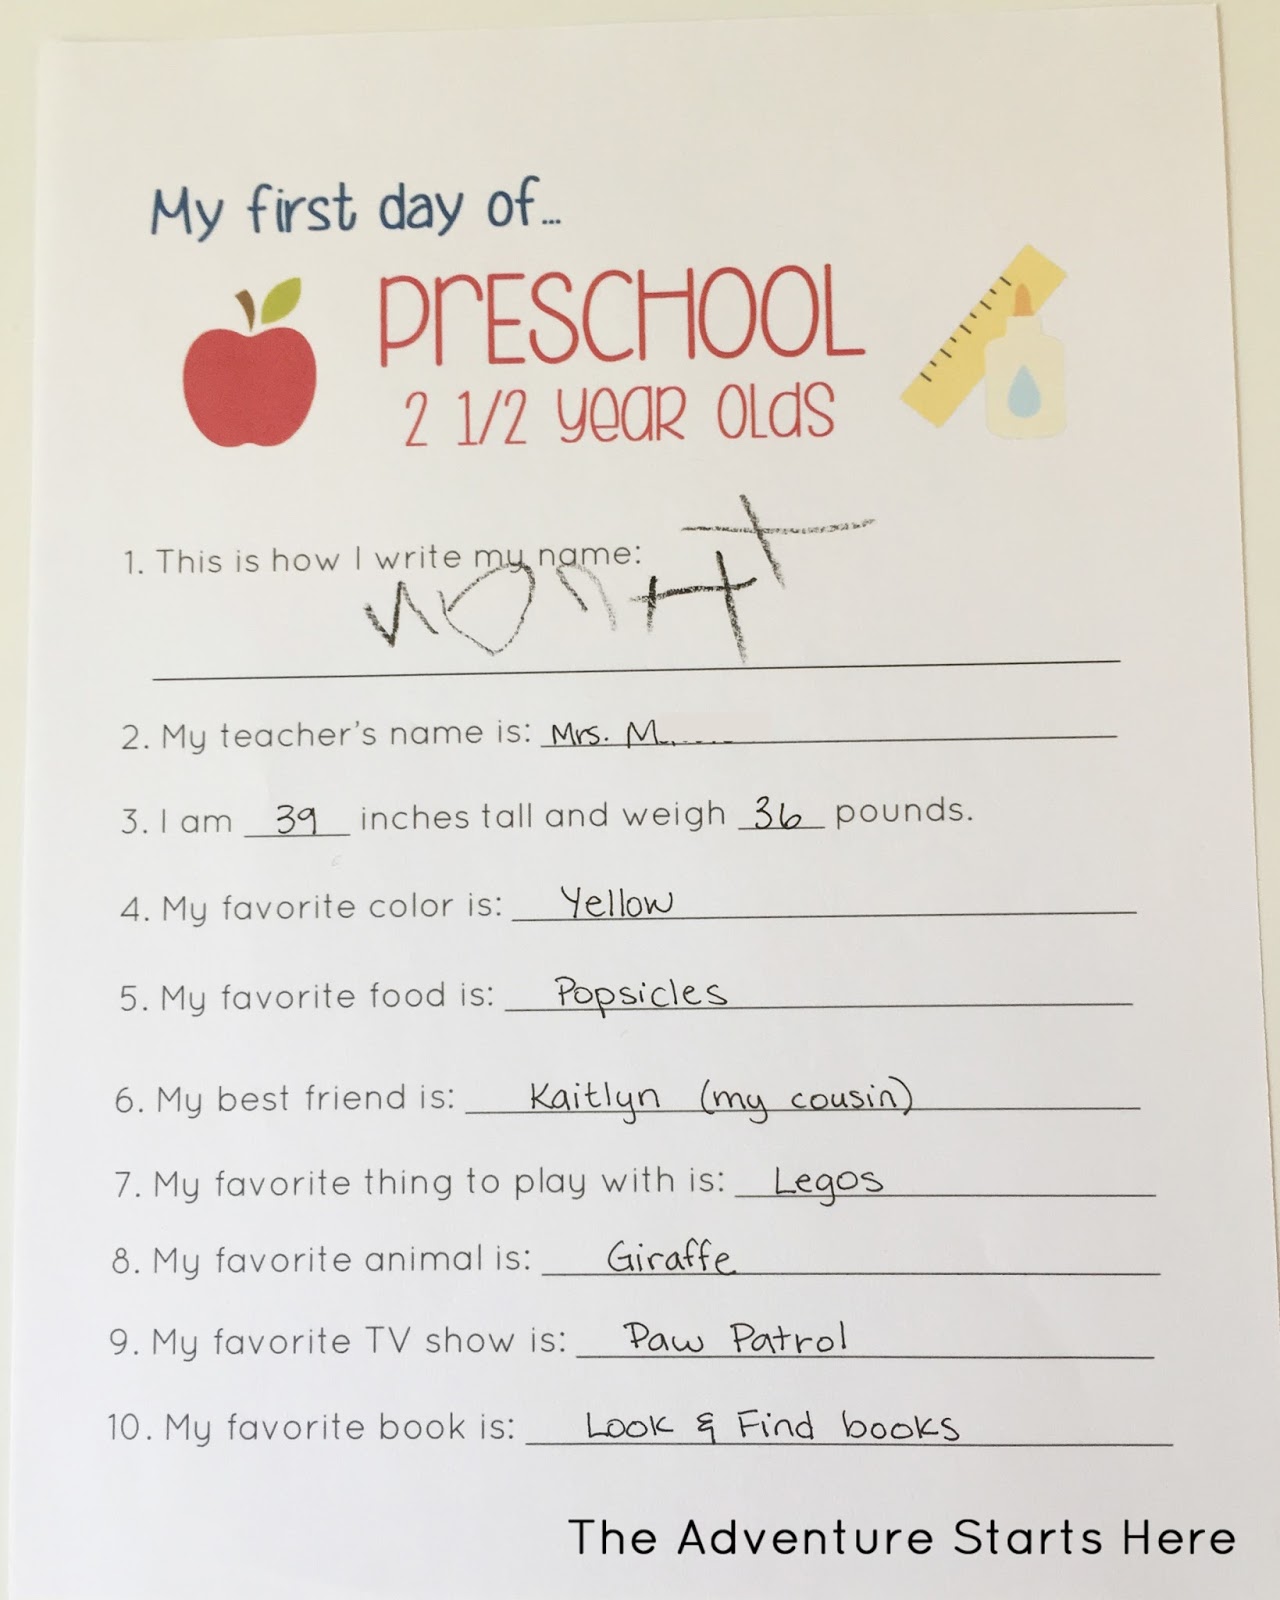 My first day of...
PrESCHOOL
2 1/2 year olds
1. This is how I write my name:
2. My teacher's name is: Mrs. M
3. I am 39 inches tall and weigh 36 pounds.
4. My favorite color is: Yellow
5. My favorite food is: Popsicles
6. My best friend is: Kaitlyn (my cousin)
7. My favorite thing to play with is: Legos
8. My favorite animal is: Giraffe
9. My favorite TV show is: Paw Patrol
10. My favorite book is: Look & Find books
The Adventure Starts Here